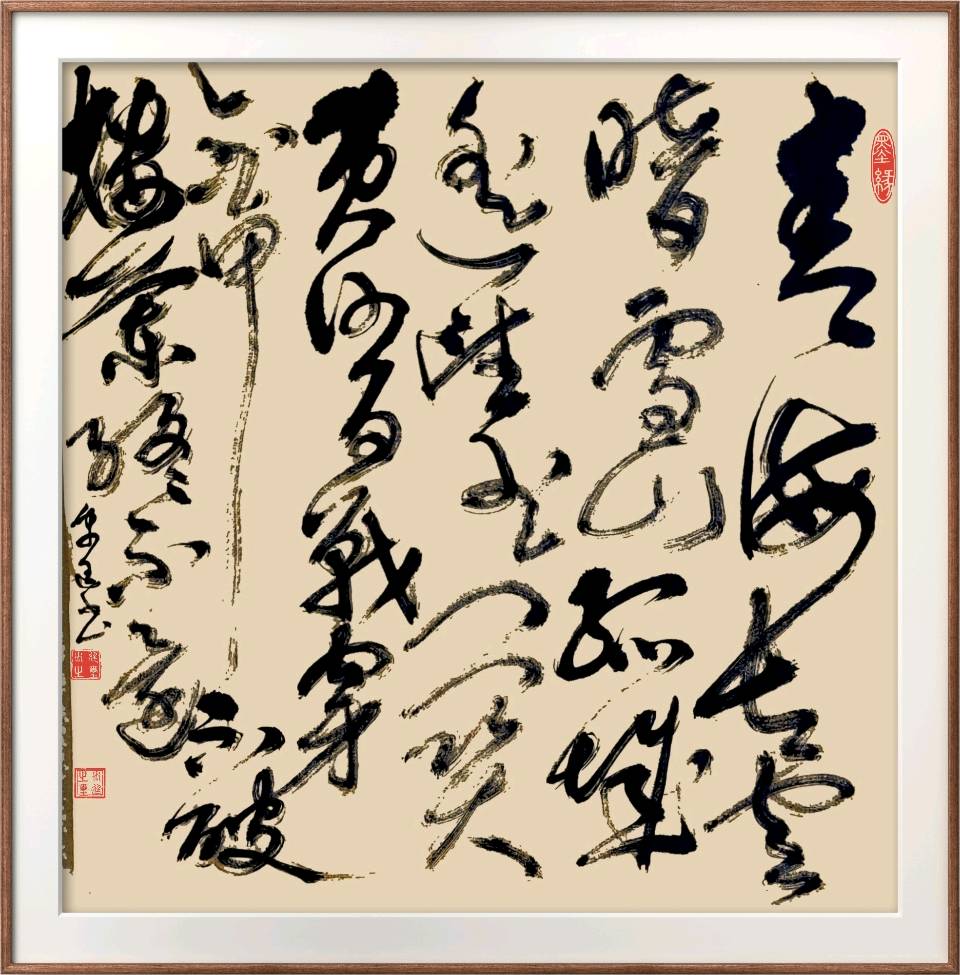 墨缘
青海长云
暗雪山孤城
遥望玉门关
黄沙百战穿
金甲不破
楼兰终不还
书